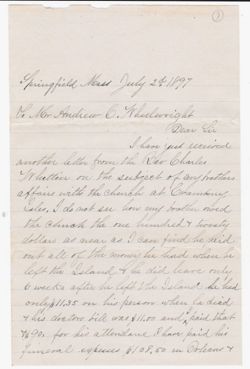 1
Springfield Mass July 2d 1897
To Mr Andrew C. Wheelwright
Dear Sir
I have just received
another letter from the Rev Charles
Whitten on the subject of my brothers
affairs with the church at Cranberry
Isles, I do not see how my brother owed
the church the one hundred & twenty
dollars as near as I can find he paid
out all of the money he had when he
left the Island & he did leave only
6 weeks after he left the Island he had
only $11.35 on his person when he died
& his doctors bill was $11.00 and I paid that
for his attendance I have paid his
funeral expenses $108.50 in Orleans &